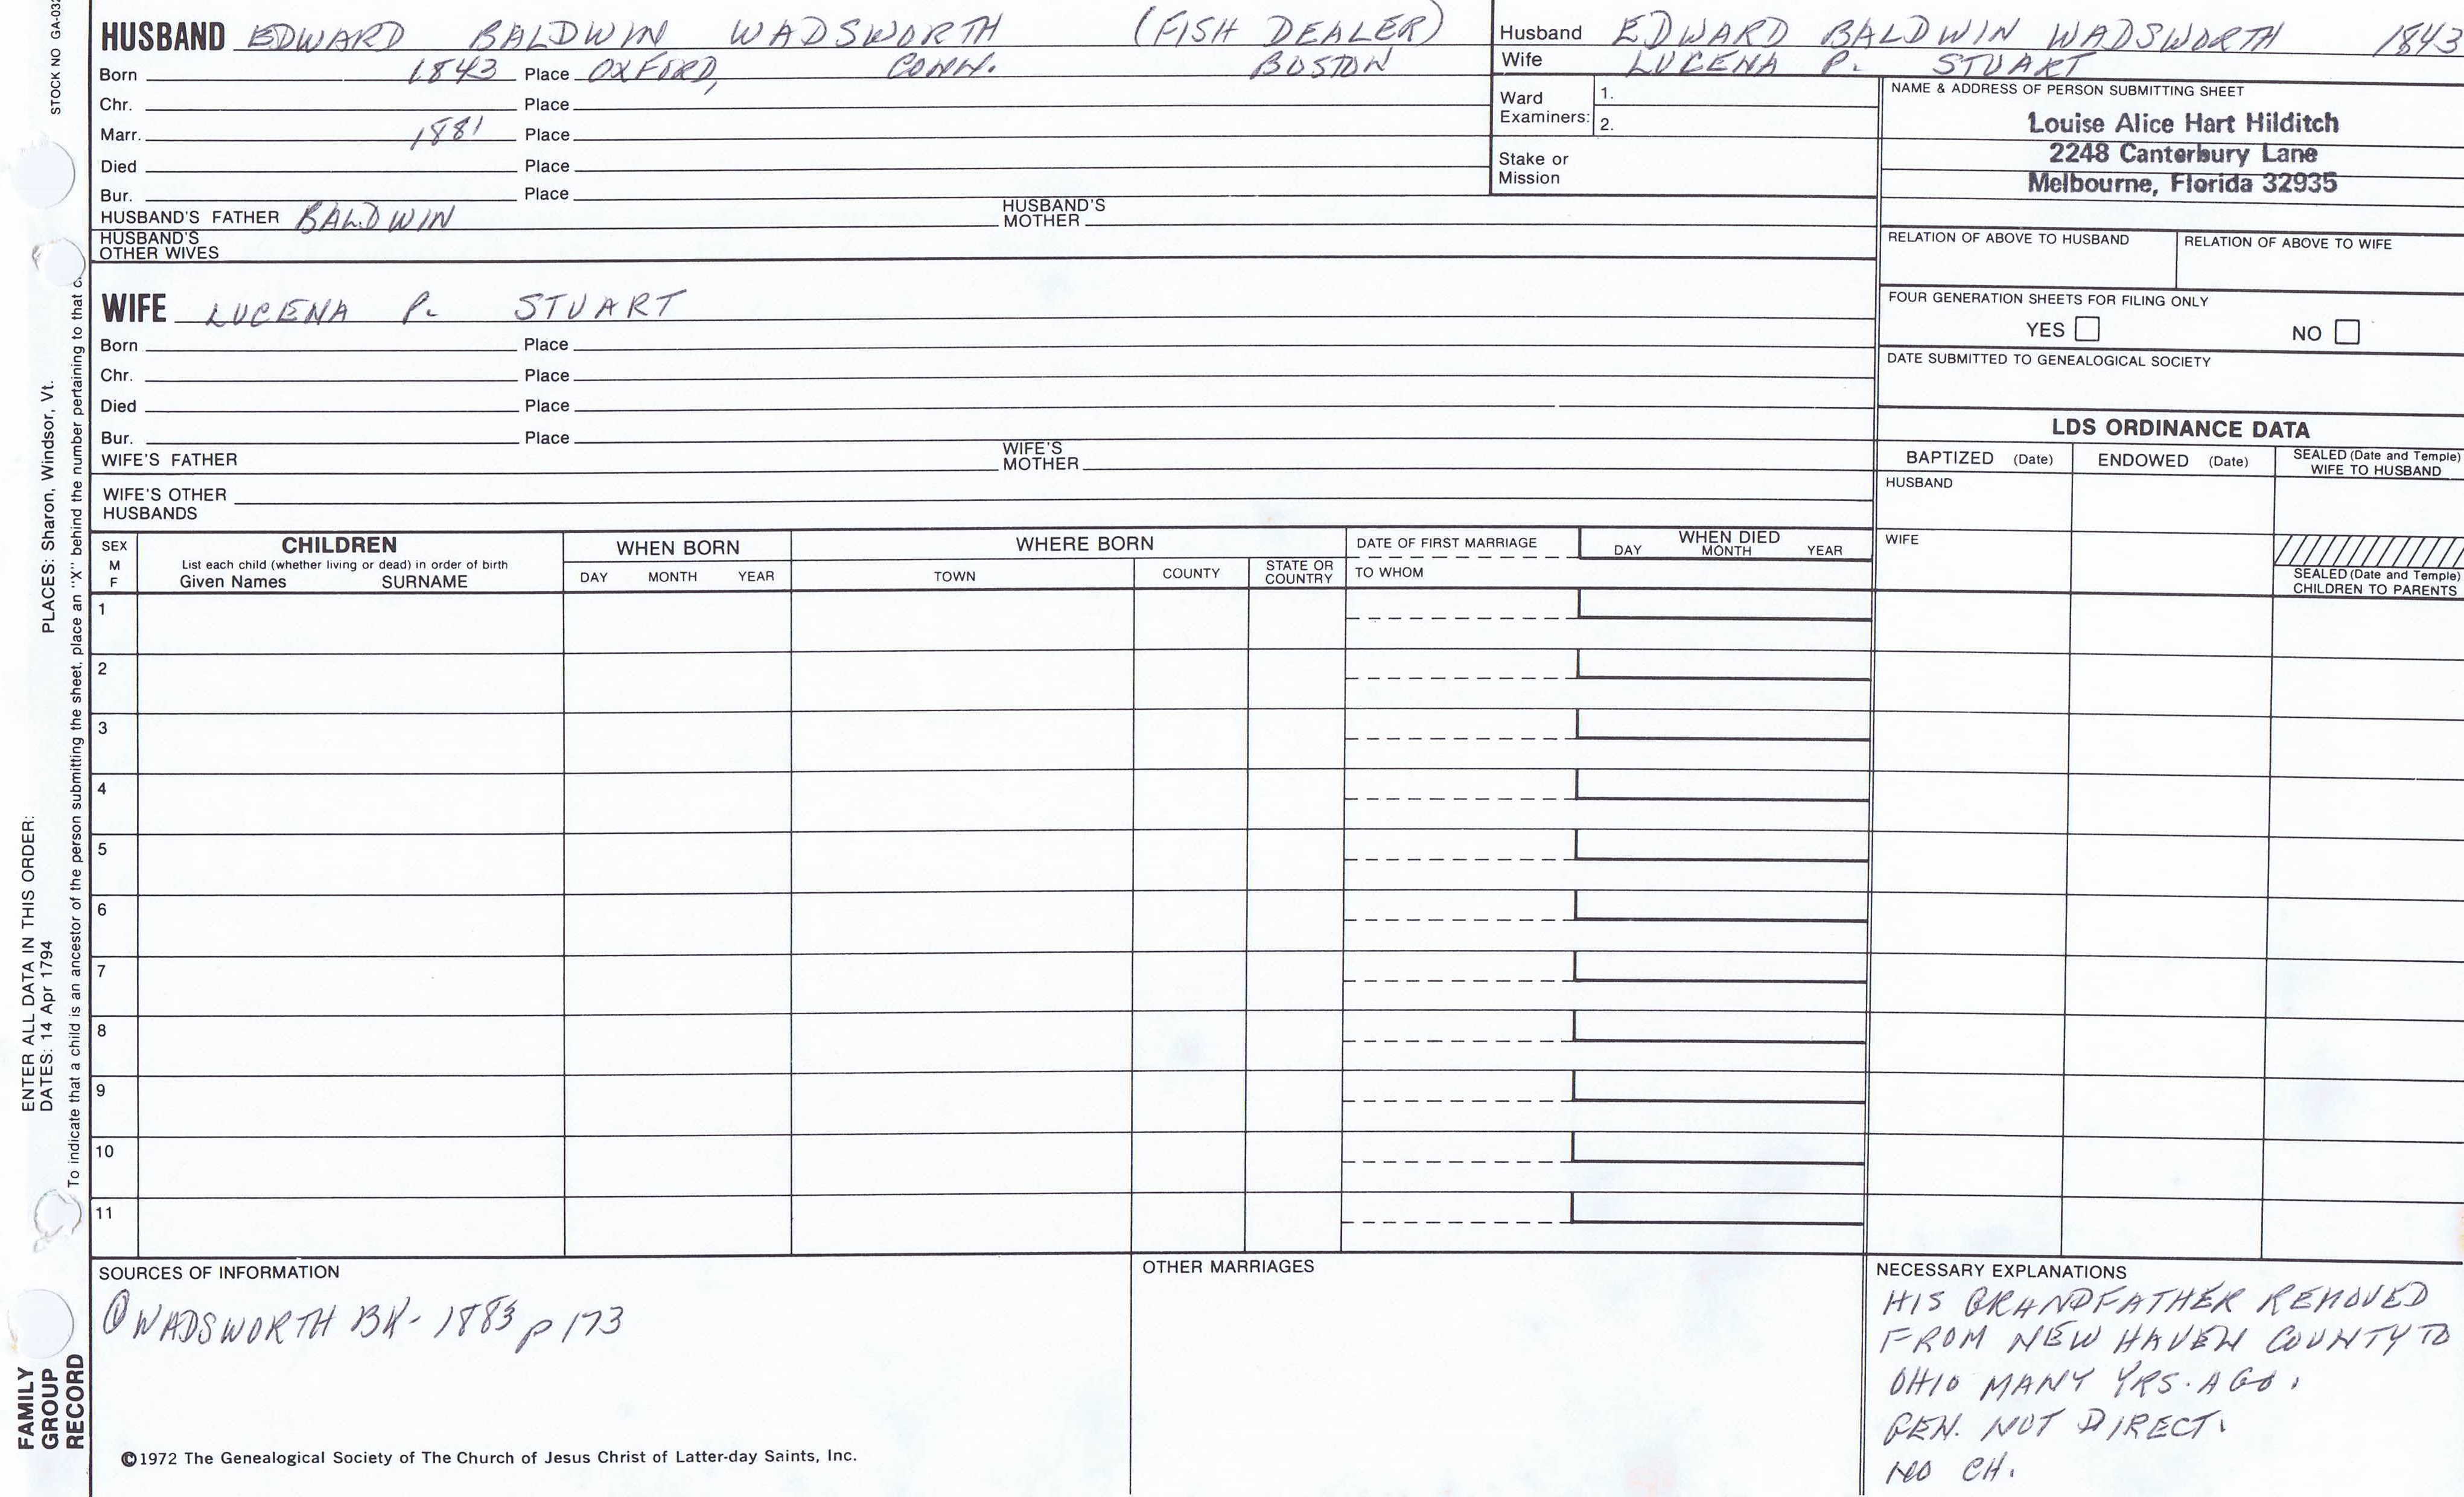 STOCK NO GA-032
HUSBAND EDWARD BALDWIN WADSWORTH (FISH DEALER)
Born 1843 Place OXFORD, CONN. BOSTON
Chr. Place
Marr. 1881 Place
Died Place
Bur. Place
HUSBAND'S FATHER BALDWIN HUSBAND'S MOTHER
HUSBAND'S OTHER WIVES
Husband EDWARD BALDWIN WADSWORTH 1843
Wife LUCENA P. STUART
Ward Examiners: 1.
2.
Stake or Mission
NAME & ADDRESS OF PERSON SUBMITTING SHEET
Louise Alice Hart Hilditch
2248 Canterbury Lane
Melbourne, Florida 32935
RELATION OF ABOVE TO HUSBAND RELATION OF ABOVE TO WIFE
FOUR GENERATION SHEETS FOR FILING ONLY
YES NO
DATE SUBMITTED TO GENEALOGICAL SOCIETY
WIFE LUCENA P. STUART
Born Place
Chr. Place
Died Place
Bur. Place
WIFE'S FATHER WIFE'S MOTHER
WIFE'S OTHER HUSBANDS
LDS ORDINANCE DATA
BAPTIZED (Date) ENDOWED (Date) SEALED (Date and Temple) WIFE TO HUSBAND
HUSBAND
WIFE
SEALED (Date and Temple) CHILDREN TO PARENTS
SEX M F
CHILDREN
List each child (whether living or dead) in order of birth
Given Names SURNAME
WHEN BORN
DAY MONTH YEAR
WHERE BORN
TOWN COUNTY STATE OR COUNTRY
DATE OF FIRST MARRIAGE
TO WHOM
WHEN DIED
DAY MONTH YEAR
1
2
3
4
5
6
7
8
9
10
11
SOURCES OF INFORMATION
① WADSWORTH BK- 1883 p 173
OTHER MARRIAGES
NECESSARY EXPLANATIONS
HIS GRANDFATHER REMOVED
FROM NEW HAVEN COUNTY TO
OHIO MANY YRS. AGO.
GEN. NOT DIRECT.
NO CH.
©1972 The Genealogical Society of The Church of Jesus Christ of Latter-day Saints, Inc.
FAMILY
GROUP
RECORD
ENTER ALL DATA IN THIS ORDER:
DATES: 14 Apr 1794 PLACES: Sharon, Windsor, Vt.
To indicate that a child is an ancestor of the person submitting the sheet, place an "X" behind the number pertaining to that c